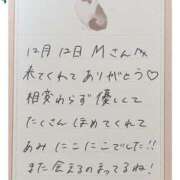 12月12日 Mさんへ
来てくれてありがとう♡
相変わらず優しくて
たくさんほめてくれて
あみにこにこでした!!
また会えるのまってるね!